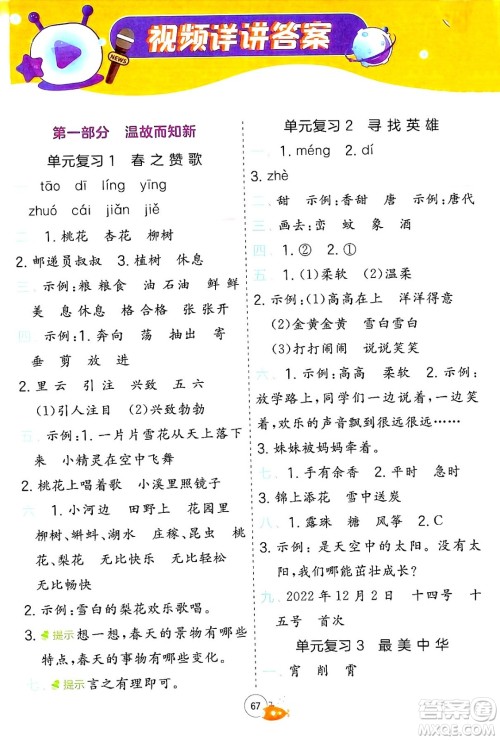 视频详讲答案
NEWS
第一部分 温故而知新
单元复习1 春之赞歌
一、tāo dī líng yīng
zhuó cái jiǎn jiě
二、1. 桃花 杏花 柳树
2. 邮递员叔叔 3. 植树 休息
三、示例:粮 粮食 油 石油 鲜 鲜
美 息 休息 格 合格 张 张开
四、示例:1. 奔向 荡 抽出 寄
垂 剪 放 游
2. 里 云 引 注 兴 致 五 六
(1)引人注目 (2)兴致勃勃
五、示例:1. 一片片雪花从天而降
小精灵 在空中飞舞
2. 桃花上唱着歌 小溪里照镜子
六、1. 小河边 田野上 花园里
柳树、蝌蚪、湖水 庄稼、昆虫 桃
花、梨花 无比快乐 无比舒畅
无比畅快
2. 示例:雪白的梨花欢乐歌唱。
3. 提示 想一想,春天的景物有哪些
特点,春天的事物有哪些变化。
七、提示 言之有理即可。
单元复习2 寻找英雄
一、1. méng 2. dí
3. zhè
二、甜 示例:香甜 唐 示例:唐代
三、画去:峦 蚊 象 酒
四、1. ② 2. ①
五、1. (1)柔软 (2)温柔
2. 示例:(1)高高在上 洋洋得意
(2)金黄金黄 雪白雪白
(3)打打闹闹 说说笑笑
六、1. 示例:高高 柔软 2. 示例:
放学路上,同学们一边说笑着,一
边嬉戏着,欢乐的声音飘到很远很
远……
3. 妹妹被妈妈牵着。
七、1. 手有余香 2. 平时 急时
3. 锦上添花 雪中送炭
八、1. 露珠 糖 风筝 2. C
3. 示例:是天空中的太阳。没有太
阳,我们哪能茁壮成长?
九、2022年12月2日 十四号 十
五号 首次
单元复习3 最美中华
一、宵 削 霄
67